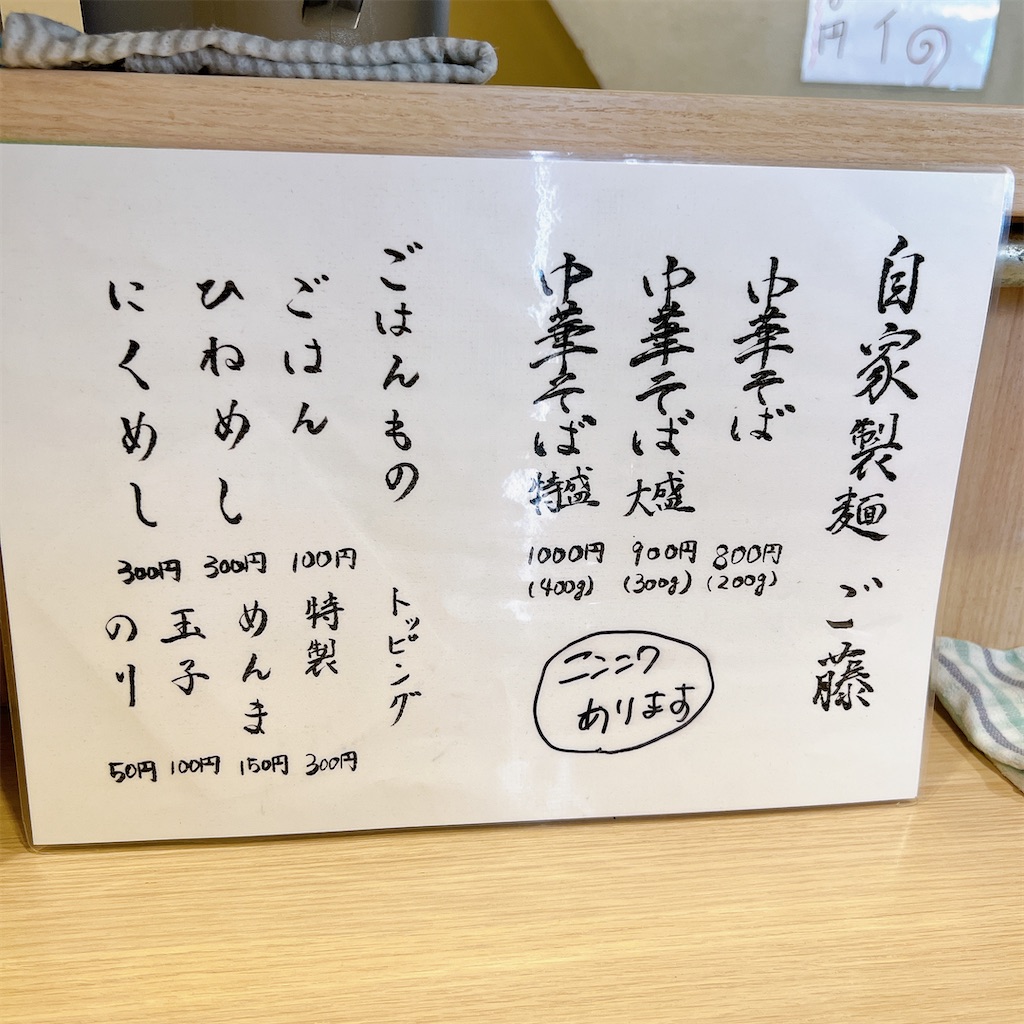 自家製麺 ご藤
中華そば 800円 (200g)
中華そば 大盛 900円 (300g)
中華そば 特盛 1000円 (400g)
ニンニク
あります
ごはんもの
ごはん 100円
ひねめし 300円
にくめし 300円
トッピング
特製 300円
めんま 150円
玉子 100円
のり 50円